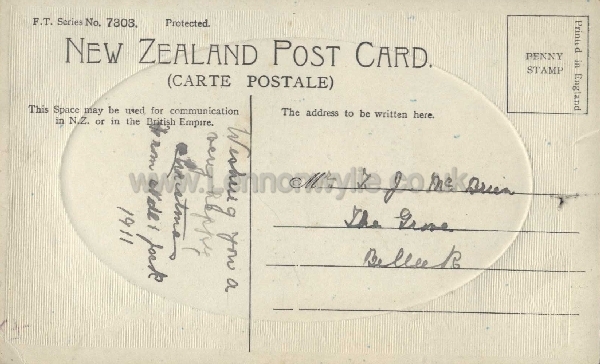 F.T. Series No. 7303. Protected.
NEW ZEALAND POST CARD.
(CARTE POSTALE)
PENNY
STAMP
Printed in England
This Space may be used for communication
in N.Z. or in the British Empire.
The address to be written here.
Wishing you a
very Happy
Christmas
from
1911
www.Lennonwylie.co.uk
Mr T J McBrien
The Grove
Belleek